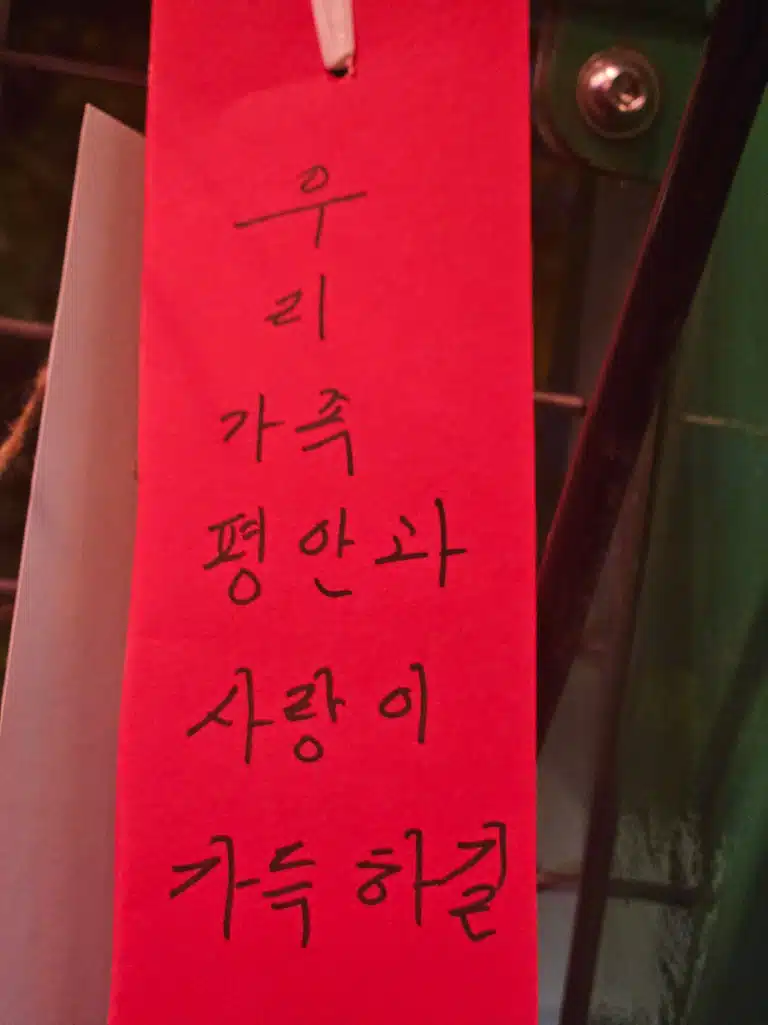 우
리
가족
평안과
사랑이
가득하길